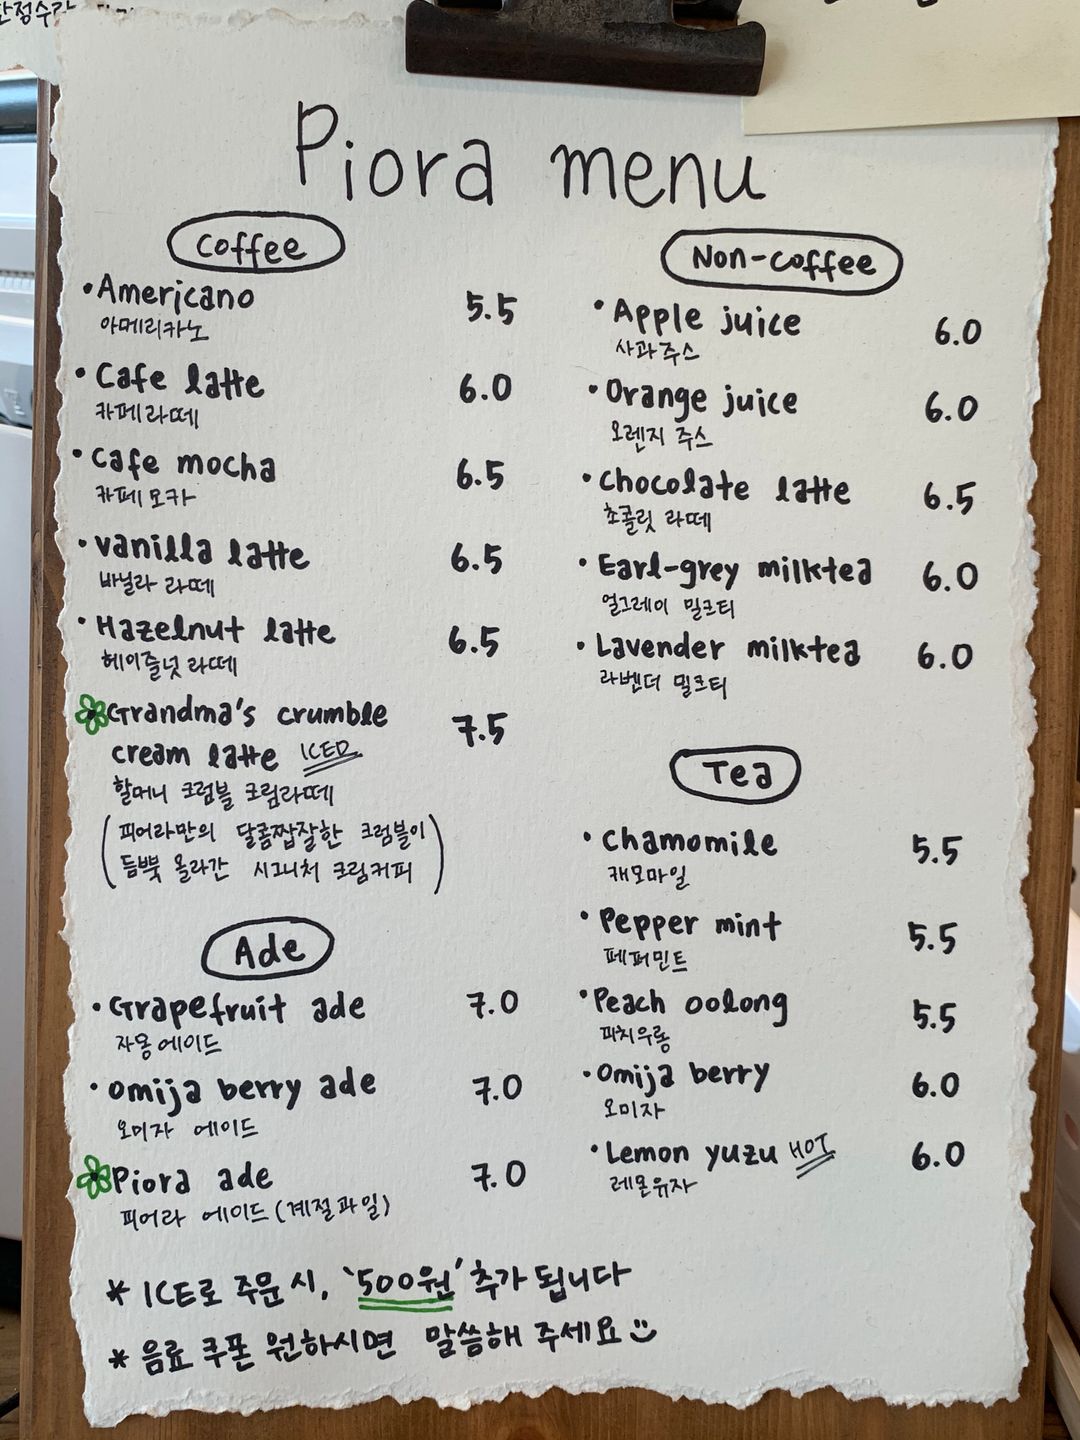 Piora menu
Coffee
• Americano 5.5
아메리카노
• Cafe latte 6.0
카페라떼
• Cafe mocha 6.5
카페모카
• Vanilla latte 6.5
바닐라 라떼
• Hazelnut latte 6.5
헤이즐넛 라떼
Grandma's crumble
cream latte ICED 7.5
할머니 크럼블 크림라떼
(피어라만의 달콤짭잘한 크럼블이
듬뿍 올라간 시그니처 크림커피)
Ade
• Grapefruit ade 7.0
자몽에이드
• Omija berry ade 7.0
오미자 에이드
Piora ade 7.0
피어라 에이드 (계절과일)
Non-coffee
• Apple juice 6.0
사과주스
• Orange juice 6.0
오렌지 주스
• Chocolate latte 6.5
초콜릿 라떼
• Earl-grey milktea 6.0
얼그레이 밀크티
• Lavender milktea 6.0
라벤더 밀크티
Tea
• Chamomile 5.5
캐모마일
• Pepper mint 5.5
페퍼민트
• Peach oolong 5.5
피치우롱
• Omija berry 6.0
오미자
• Lemon yuzu HOT 6.0
레몬유자
* ICE로 주문 시, '500원' 추가 됩니다
* 음료 쿠폰 원하시면 말씀해 주세요